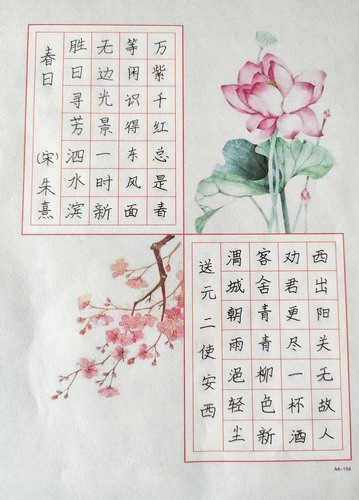 春日 (宋)朱熹
胜日寻芳泗水滨
无边光景一时新
等闲识得东风面
万紫千红总是春
送元二使安西
渭城朝雨浥轻尘
客舍青青柳色新
劝君更尽一杯酒
西出阳关无故人
A4-154